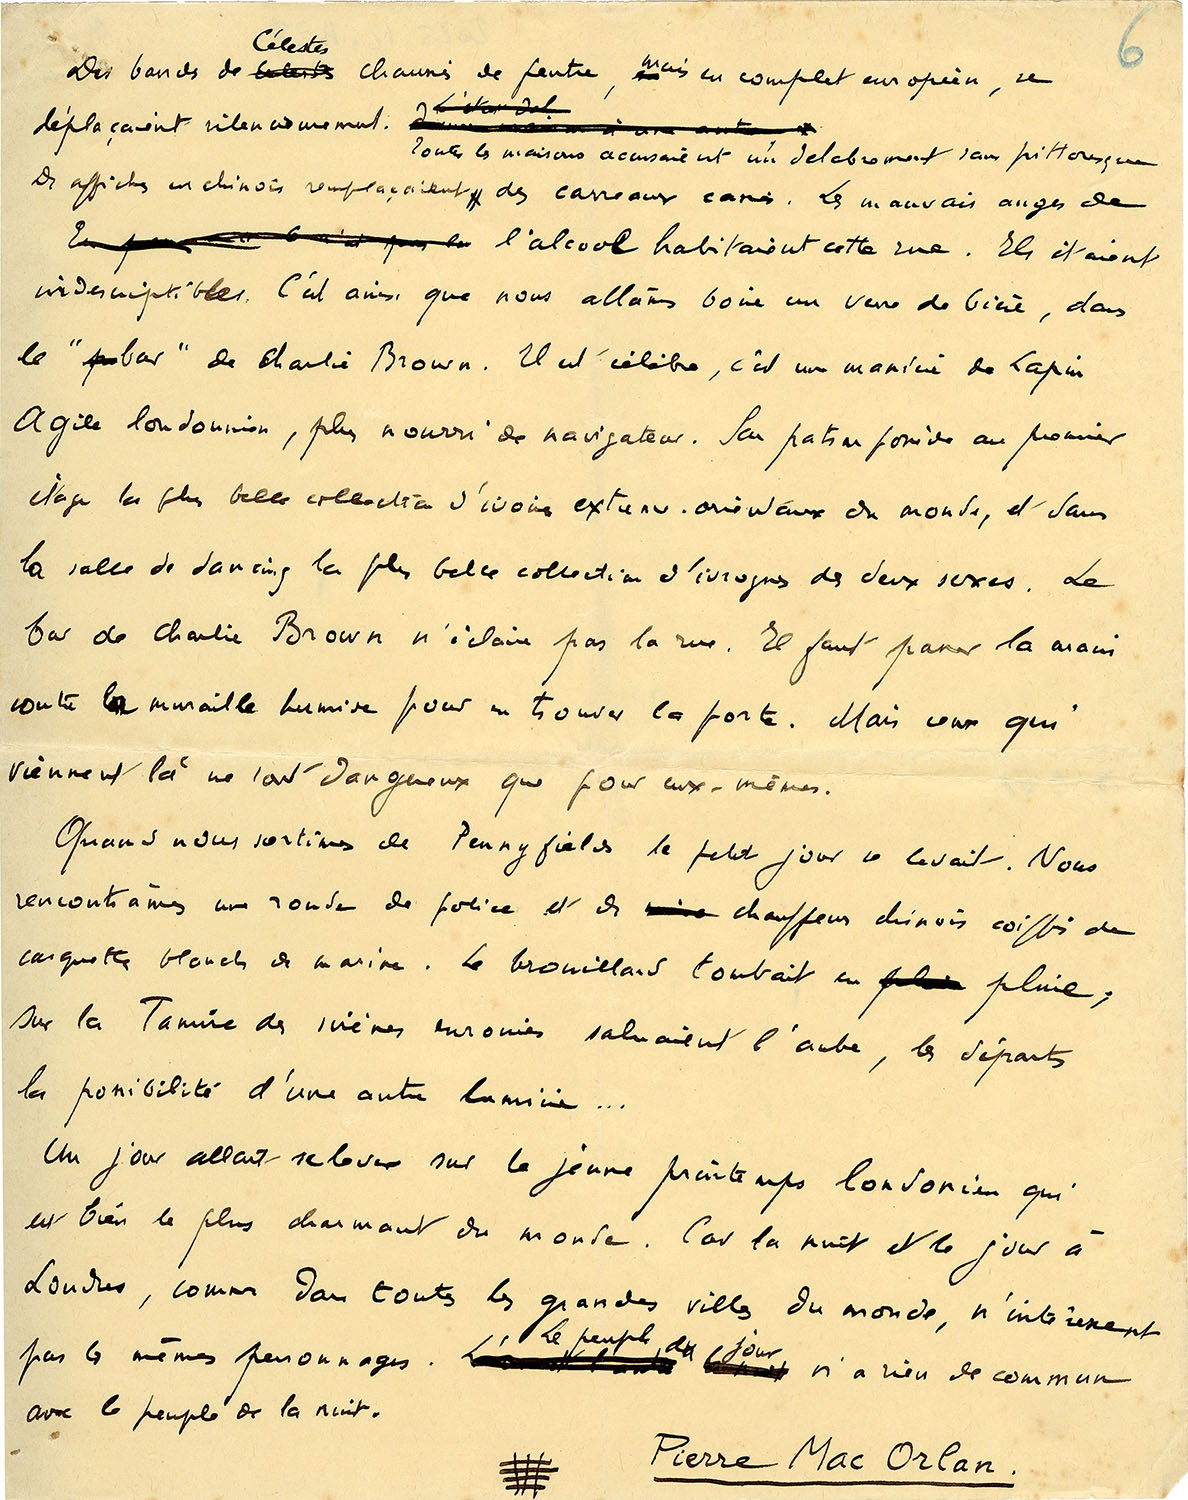 6
Célestes
Des bandes de Célestes chaussés de feutre, mais en complet européen, se
déplaçaient silencieusement.
L'état del
Toutes les maisons accusaient un délabrement sans pittoresque
Des affiches en chinois remplaçaient des carreaux cassés. Les mauvais anges de
l'alcool habitaient cette rue. Ils étaient
indescriptibles. C'est ainsi que nous allâmes boire un verre de bière, dans
le "bar" de Charlie Brown. Il est célèbre, c'est une manière de Lapin
Agile londonnien, plus nourri de navigateurs. Son patron possède au premier
étage la plus belle collection d'ivoires extrême-orientaux du monde, et dans
la salle de dancing la plus belle collection d'ivrognes des deux sexes. Le
bar de Charlie Brown n'éclaire pas la rue. Il faut passer la main
contre la muraille humide pour en trouver la porte. Mais ceux qui
viennent là ne sont dangereux que pour eux-mêmes.
Quand nous sortîmes de Pennyfields le petit jour se levait. Nous
rencontrâmes une ronde de police et des chauffeurs chinois coiffés de
casquettes blanches de marine. Le brouillard tombait en pluie;
sur la Tamise des sirènes enrouées saluaient l'aube, les départs
la possibilité d'une autre lumière...
Un jour allait se lever sur le jeune printemps londonien qui
est bien le plus charmant du monde. Car la nuit et le jour à
Londres, comme dans toutes les grandes villes du monde, n'intéressent
pas les mêmes personnages. Le peuple du jour n'a rien de commun
avec le peuple de la nuit.
Pierre Mac Orlan.